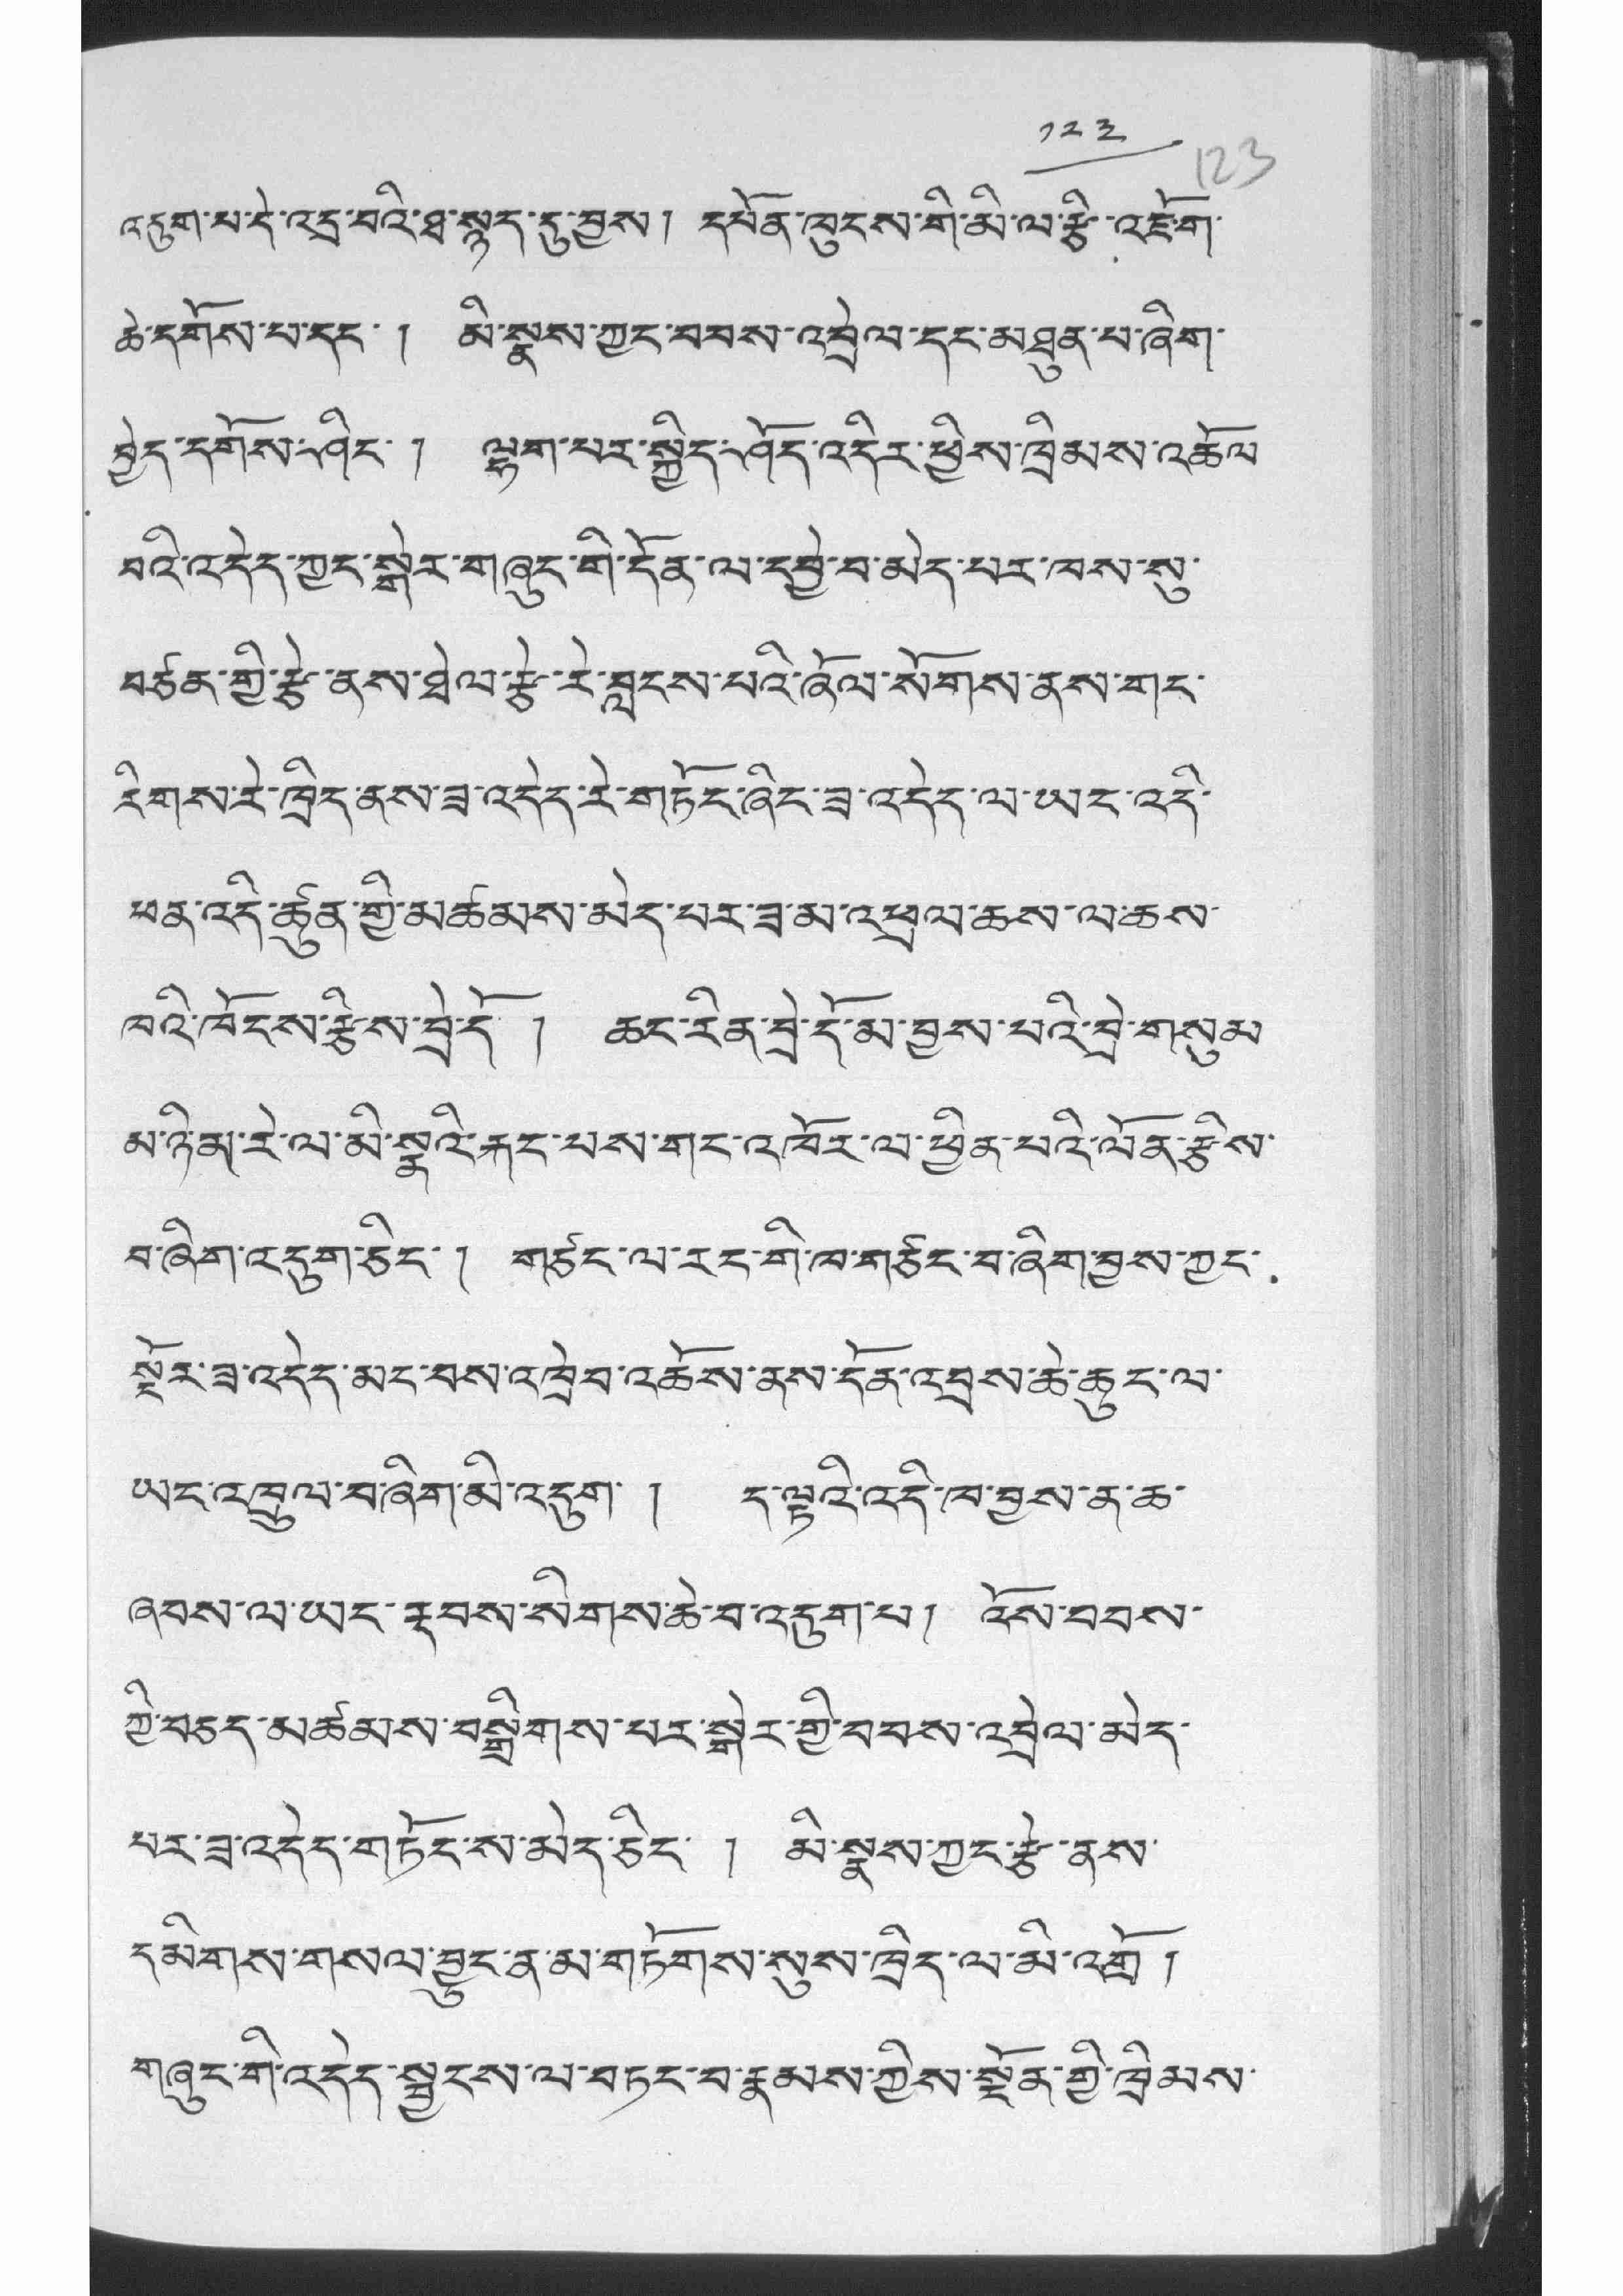 ༡༢༣
123
འདུག་པ་དེ་འདྲ་བའི་ཐ་སྙད་དུ་བྱས། དཔོན་ཁུངས་གི་མི་ལ་རྩི་འཇོག་
ཆེ་དགོས་པ་དང་། མི་སྣས་ཀྱང་བབས་འབྲེལ་དང་མཐུན་པ་ཞིག་
བྱེད་དགོས་ཤིང་། ལྷག་པར་སྐྱིད་ཤོད་འདིར་ཕྱིས་ཁྲིམས་འཚོལ
བའི་འདེད་ཀྱང་སྒེར་གཞུང་གི་དོན་ལ་དབྱེ་བ་མེད་པར་ཁས་སུ་
བཙན་གྱི་རྩེ་ནས་ཐེལ་རྩེ་རེ་བླངས་པའི་ཞོལ་སོགས་ནས་གང་
རིགས་རེ་ཁྲིད་ནས་ཟ་འདེད་རེ་གཏོང་ཞིང་ཟ་འདེད་ལ་ཡང་འདི་
ཕན་འདི་ཚུན་གྱི་མཚམས་མེད་པར་ཟ་མ་འཕྲལ་ཆས་ལ་ཆས་
ཁའི་ཁོངས་རྩིས་བྲེ་དོ། ཆང་རིན་བྲེ་དོ་མ་བྱས་པའི་བྲེ་གསུམ
མ་ཉིན་རེ་ལ་མི་སྣའི་རྐང་པས་གང་འཁོར་ལ་ཕྱིན་པའི་ལོན་རྩིས་
བ་ཞིག་འདུག་ཅིང་། གཙང་ལ་རང་གི་ཁ་གཙང་བ་ཞིག་བྱས་ཀྱང་
སྔོར་ཟ་འདེད་མང་བས་འཁྲེབ་འཆོས་ནས་དོན་འབྲས་ཆེ་ཆུང་ལ་
ཡང་འཁྲུལ་བ་ཞིག་མི་འདུག། ད་ལྟའི་འདི་ཁ་བྱས་ན་ཆ་
ཞབས་ལ་ཡང་རྡབས་སིགས་ཆེ་བ་འདུག་པ། འོས་བབས་
ཀྱི་བཅད་མཚམས་བསྒྲིགས་པར་སྒེར་གྱི་བབས་འབྲེལ་མེད་
པར་ཟ་འདེད་གཏོང་ས་མེད་ཅིང་། མི་སྣས་ཀྱང་རྩེ་ནས་
དམིགས་གསལ་བྱུང་ན་མ་གཏོགས་སུས་ཁྲིད་ལ་མི་འགྲོ།
གཞུང་གི་འདེད་སྦྱངས་ལ་བཏང་བ་རྣམས་ཀྱིས་སྔོན་གྱི་ཁྲིམས་